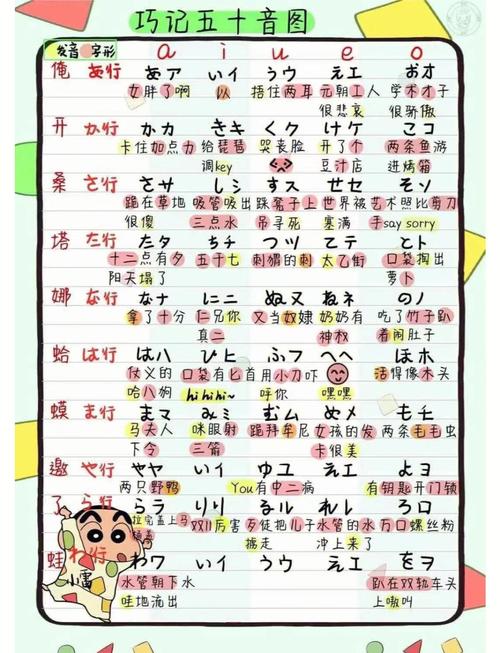 巧记五十音图
发音 字形 a i u e o
俺 あ行 あア いイ うウ えエ おオ
女胖了啊 以 捂住两耳 元朝工人 学术才子
很悲哀 很骄傲
开 か行 かカ きキ くク けケ こコ
卡住如点力 给琵琶 哭丧脸 开了个 两条鱼游
调key 豆汁店 进烤箱
桑 さ行 さサ しシ すス せセ そソ
跪在草地 吸管吸出 踩凳子上 世界被 艺术照比剪刀
很傻 三点水 吊寻死 塞满 手say sorry
塔 た行 たタ ちチ つツ てテ とト
十二点有夕 五千七 刺猬的刺 太乙街 口袋掏出
阳天塌了 萝卜
娜 な行 なナ にニ ぬヌ ねネ のノ
拿了十分 仁兄你 又当奴隶 奶奶有 吃了竹子趴
真二 神权 着闹肚子
蛤 は行 はハ ひヒ ふフ へヘ ほホ
仗义的 口袋有匕首 用小刀吓 活得像木头
哈八狗 hihihi~ 呼你 嘿嘿
蟆 ま行 まマ みミ むム めメ もモ
马夫人 咪眼射 跪拜牟尼 女孩的发 两条毛毛虫
下令 三箭 卡很美
邀 や行 やヤ いイ ゆユ えエ よヨ
两只野鸭 You有中二病 有钥匙开门锁
了 ら行 らラ りリ るル れレ ろロ
拉宅盖上马 双11厉害 歹徒把儿子 水管的水 万口螺丝粉
桶盖 掳走 冲上来了
蛙 わ行 わワ いイ うウ えエ をヲ
小雷 水管朝下水 趴在双轨车头
哇地流出 上嗷叫